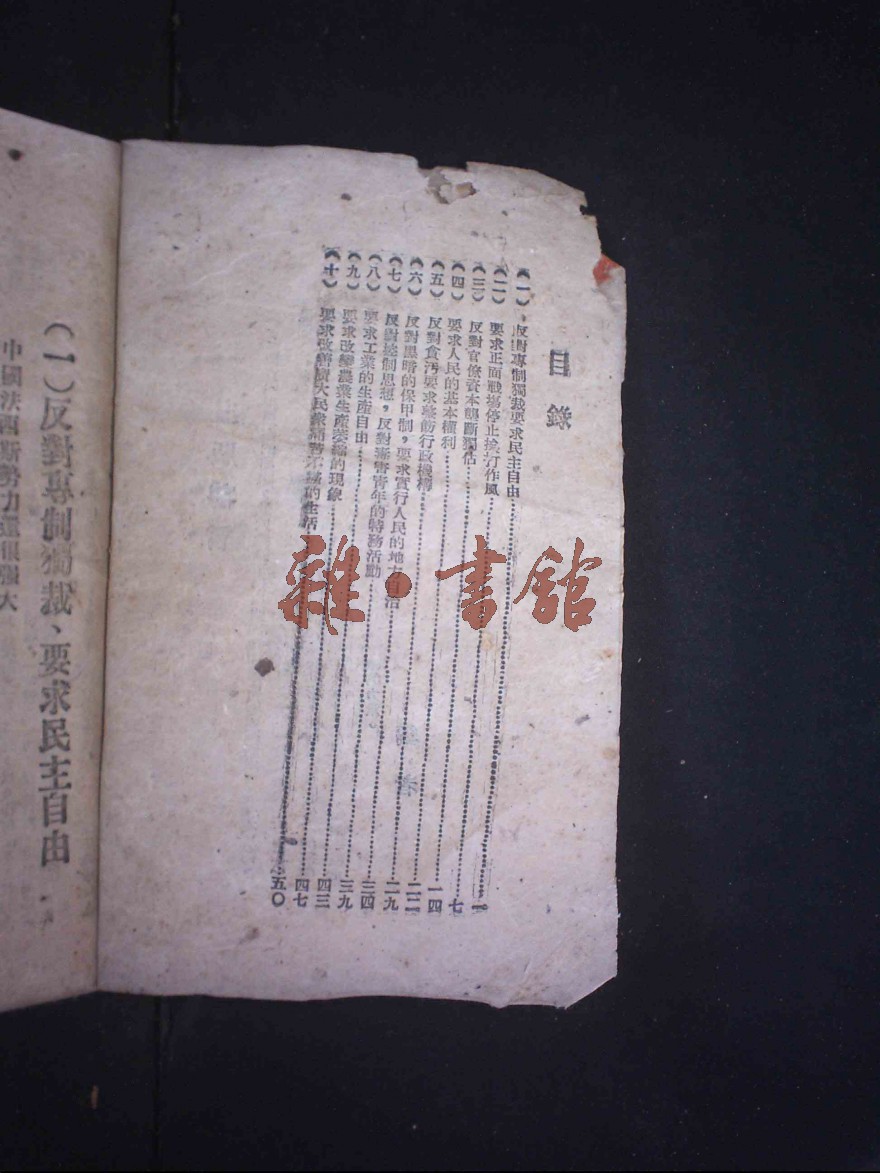 目錄
（一）反對專制獨裁要求民主自由……一
（二）要求正面戰場停止挨打作風……七
（三）反對官僚資本壟斷獨佔……一四
（四）要求人民的基本權利……二二
（五）反對貪污要求整飭行政機構……二九
（六）反對黑暗的保甲制，要求實行人民的地方自治……三四
（七）反對統制思想，反對青年的特務活動……三九
（八）要求工業的生產自由……四三
（九）要求改變農業生產萎縮的現象……四七
（十）要求改善廣大民衆不堪的生活……五〇
雜·書館
（一）反對專制獨裁、要求民主自由
中國法西斯勢力還很强大